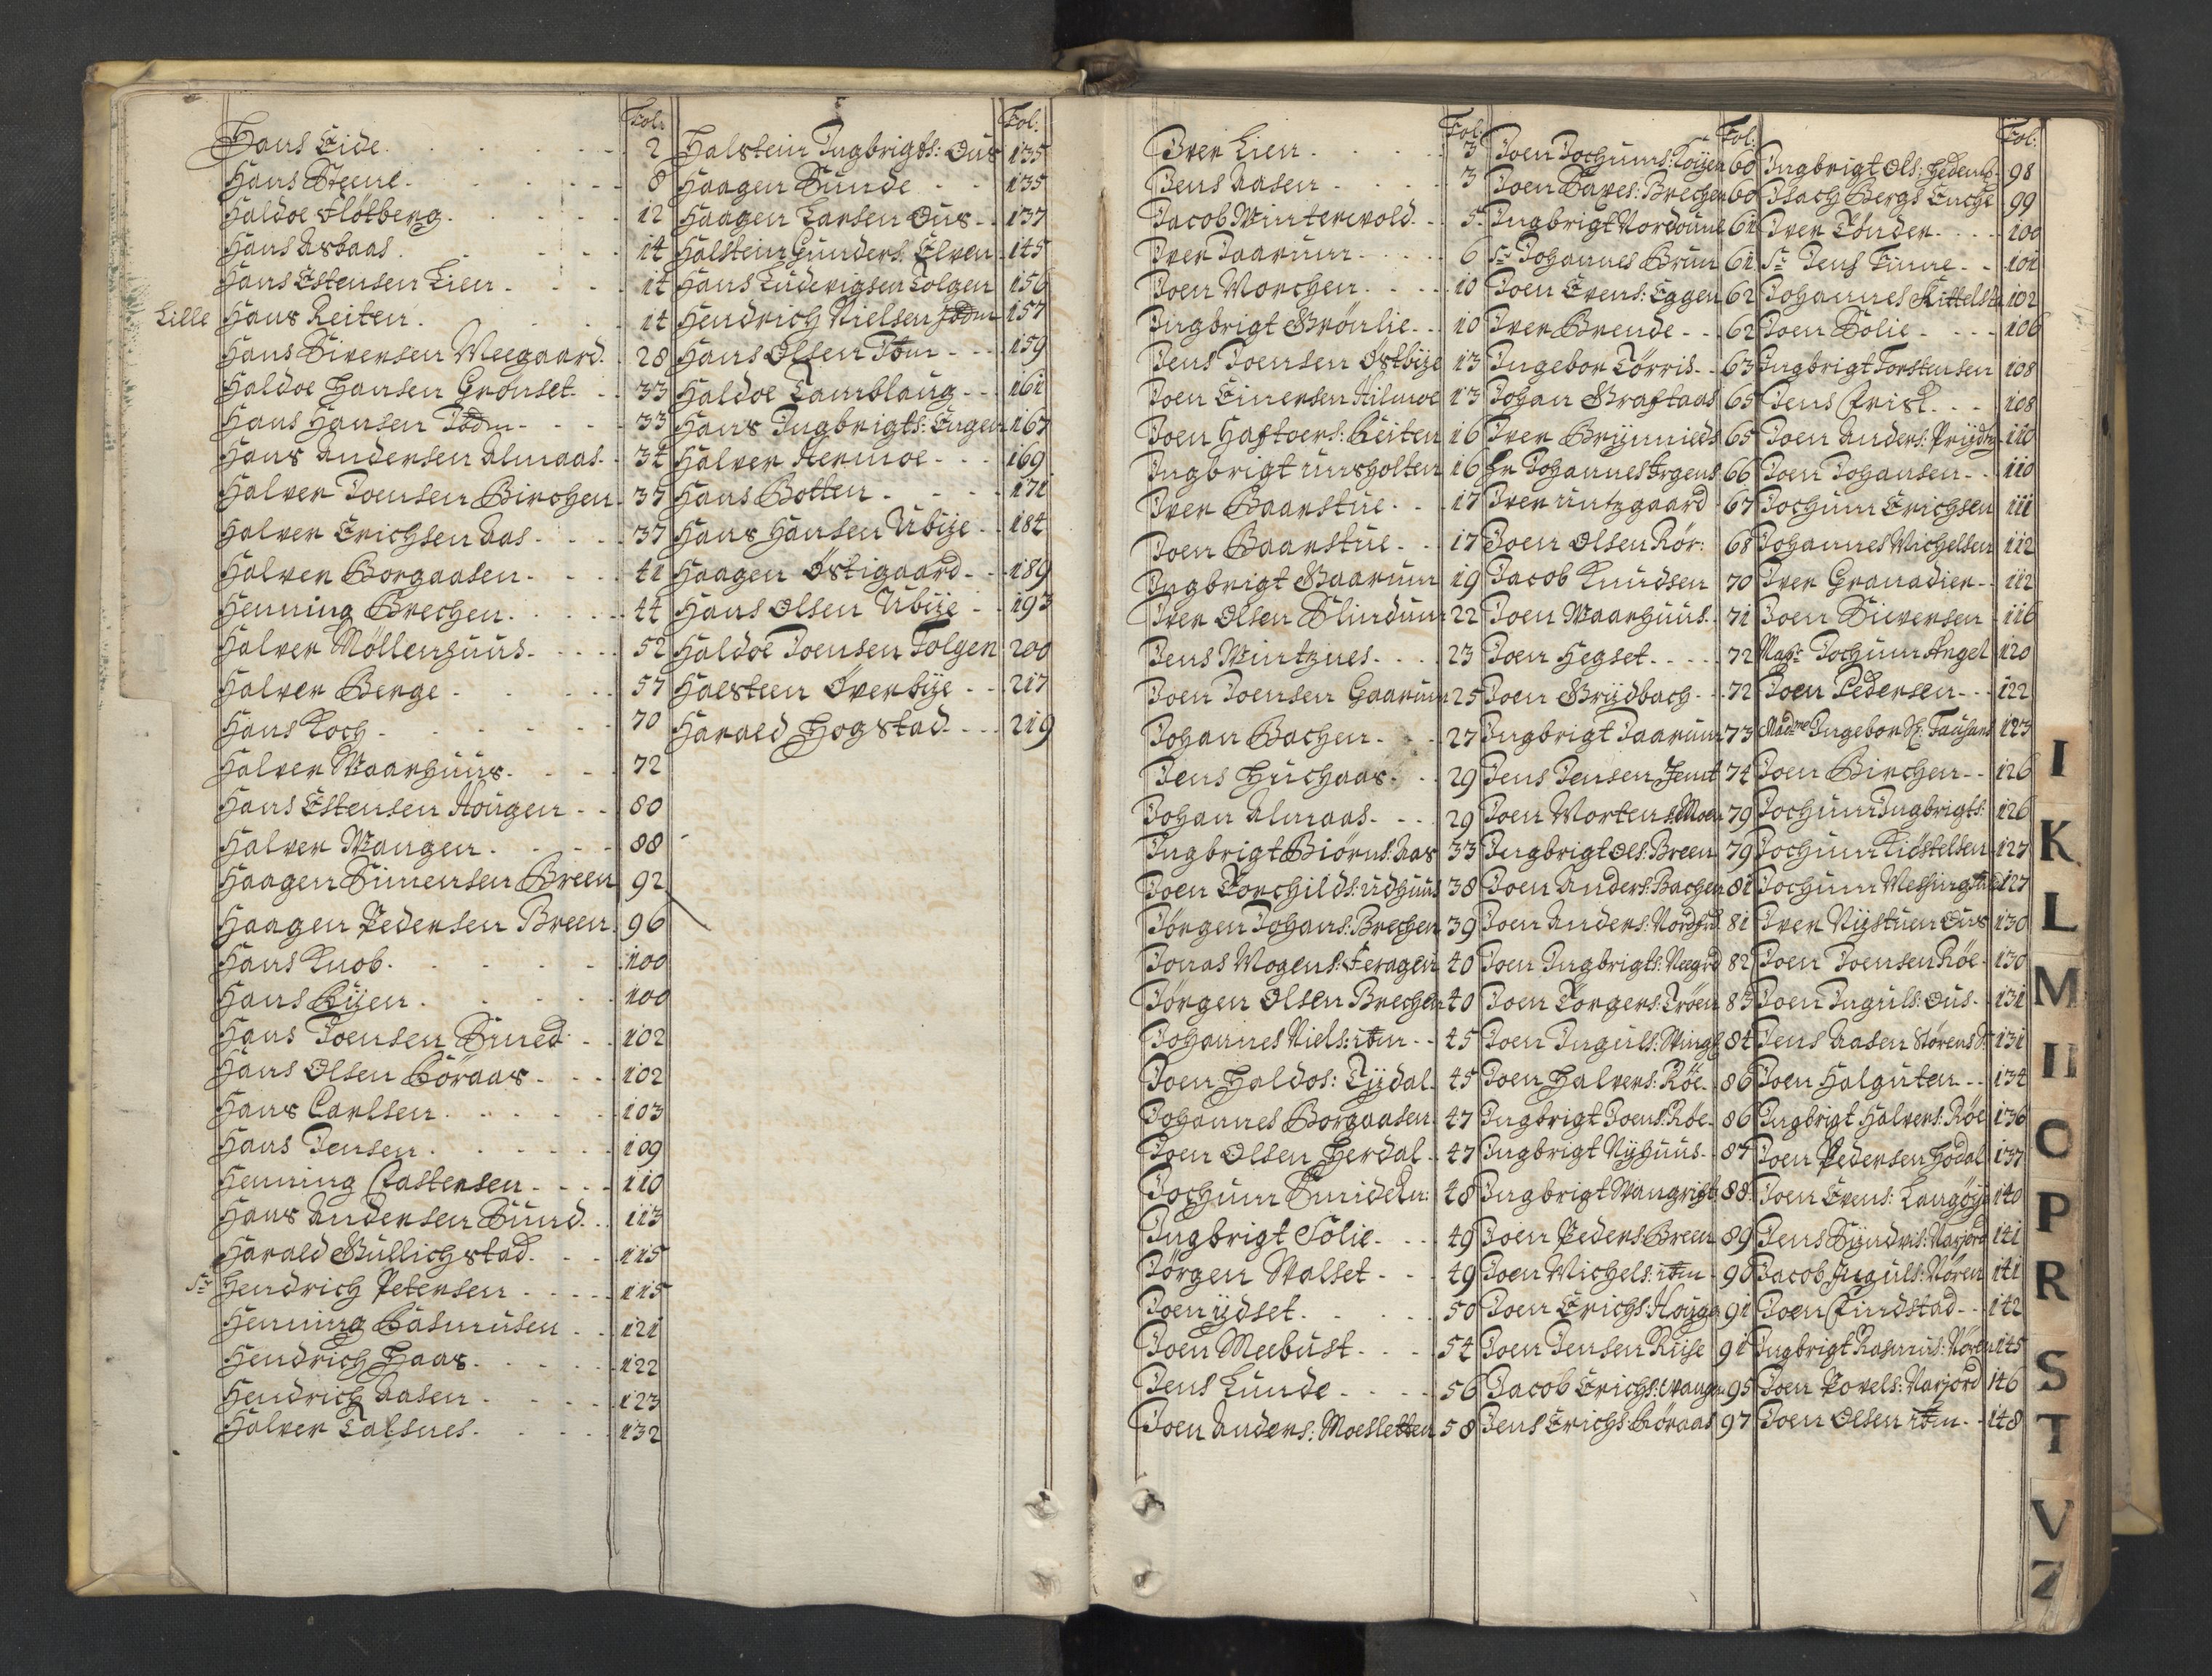 Fol:
Hans Eide 2
Hans Steene 8
Haldoe Flotberg 12
Hans Asbaas 14
Hans Estensen Lien 14
Lille Hans Reiten 14
Hans Siversen Meegaard 28
Haldoe Hansen Grønset 33
Hans Hansen 33
Hans Andersen Almaas 34
Halver Joensen Birchen 37
Halver Erichsen Aas 37
Halver Borgaasen 41
Henning Brechen 44
Halver Möllenhuus 52
Halver Berge 57
Hans Koch 70
Halver Maarhuus 72
Hans Estensen Hougen 80
Halver Mangen 88
Haagen Simensen Breen 92
Haagen Pedersen Breen 96
Hans Knob 100
Hans Bÿen 100
Hans Joensen Smed 102
Hans Olsen Röraas 102
Hans Carlsen 103
Hans Jensen 109
Henning Castensen 110
Hans Andersen Sund 113
Harald Gullichstad 115
Sr Hendrich Petersen 115
Henning Rasmusen 121
Hendrich Haas 122
Hendrich Aasen 123
Halver Talsnes 132
Fol:
Halstein Ingbrigts: Ous 135
Haagen Sunde 135
Haagen Larsen Ous 137
Halstein Gunders: Elven 145
Hans Ludevigsen Tolgen 156
Hendrich Nielsen 157
Hans Olsen 159
Haldoe Tamblaug 161
Hans Ingbrigts: Engen 167
Halver Hermoe 169
Hans Botten 171
Hans Hansen Ubÿe 184
Haagen Östigaard 189
Hans Olsen Ubÿe 193
Haldoe Joensen Tolgen 200
Halsteen Överbÿe 217
Harald Hogstad 219
Fol:
Iver Lien 3
Jens Aasen 3
Jacob Wintervold 5
Iver Taarum 6
Joen Morchen 10
Ingbrigt Grönlie 10
Jens Joensen Östbÿe 13
Joen Einersen Hilmoe 13
Joen Haftoers: Reiten 16
Ingbrigt Aunsholten 16
Iver Baarstue 17
Joen Baarstue 17
Ingbrigt Gaarum 19
Iver Olsen Slindum 22
Jens Mintznes 23
Joen Joensen Gaarum 25
Johan Bachen 27
Jens Huchaas 29
Johan Almaas 29
Ingbrigt Biörns: Aas 33
Joen Torchilds: Udhuus 38
Jörgen Johans: Brechen 39
Jonas Mogens: Feragen 40
Jörgen Olsen Brechen 40
Johannes Niels: itm 45
Joen Haldos: Tÿdal 45
Johannes Borgaasen 47
Joen Olsen Herdal 47
Jochum 48
Ingbrigt Solie 49
Jörgen Walset 49
Joen Ÿdset 50
Joen Meebust 54
Jens Lunde 56
Joen Anders: Moesletten 58
Fol:
Joen Jochums: Koÿen 60
Joen Taves: Brechen 60
Ingbrigt Nordoune 61
Sr Johannes Brun 61
Joen Evens: Eggen 62
Iver Brende 62
Ingebor Törris 63
Johan Graftaas 65
Iver Brÿnnieds 65
Hr Johannes Irgens 66
Iver Untzgaard 67
Joen Olsen Rör: 68
Jacob Knudsen 70
Joen Maarhuus 71
Joen Hegset 72
Joen Grÿdbach 72
Ingbrigt Taarum 73
Jens Jensen Jemt 74
Joen Mortens: Moen 79
Ingbrigt Ols: Breen 79
Joen Anders: Bachen 81
Joen Anders: 81
Joen Ingbrigts: 82
Joen Törgers: Tröen 83
Joen Inguls: 84
Joen Halvers: Röe 86
Ingbrigt Joens: Röe 86
Ingbrigt Nÿhuus 87
Ingbrigt 88
Joen Peders: Breen 89
Joen Michels: itm 90
Joen Erichs: Houge 91
Joen Jensen Ruse 91
Jacob Erichs: 95
Jens Erichs: Röraas 97
Fol:
Ingbrigt Ols: 98
Isach Bergs Enche 99
Iver Tönder 100
Sr Jens Finne 101
Johannes Kittels: 102
Joen Solie 106
Ingbrigt Torstensen 108
Jens Crist 108
Joen Anders: 110
Joen Johansen 110
Jochum Erichsen 111
Johannes Michelsen 112
Iver Granadier 112
Joen Siversen 116
Jochum Angel 120
Joen Pedersen 122
Madme Ingebor 123
Joen Birchen 126
Jochum Ingbrigts: 126
Jochum Kiöstelsen 127
Jochum 127
Iver Nÿstuen Ous 130
Joen Joensen Röe 130
Joen Inguls: Ous 131
Jens Aasen 131
Joen Halguten 134
Ingbrigt Halvers: Röe 136
Joen Pedersen Hodal 137
Joen Evens: Langöÿe 140
Jens Narjord 141
Jacob Inguls: Nören 141
Joen Findstad 142
Ingbrigt Rasmus: Nören 145
Joen Povels: Narjord 146
Joen Olsen itm 148
I
K
L
M
II
O
P
R
S
T
V
Z